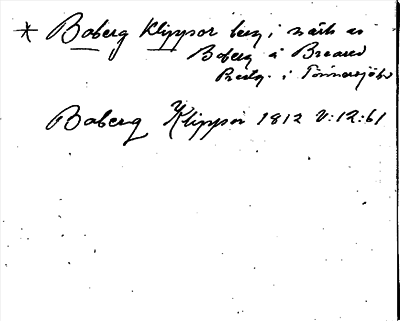 * Boberg Klippor berg i närh. av
Boberg å Breared
Prästg. i Tönnersjö hd
Boberg Klippor 1812 V:12:61